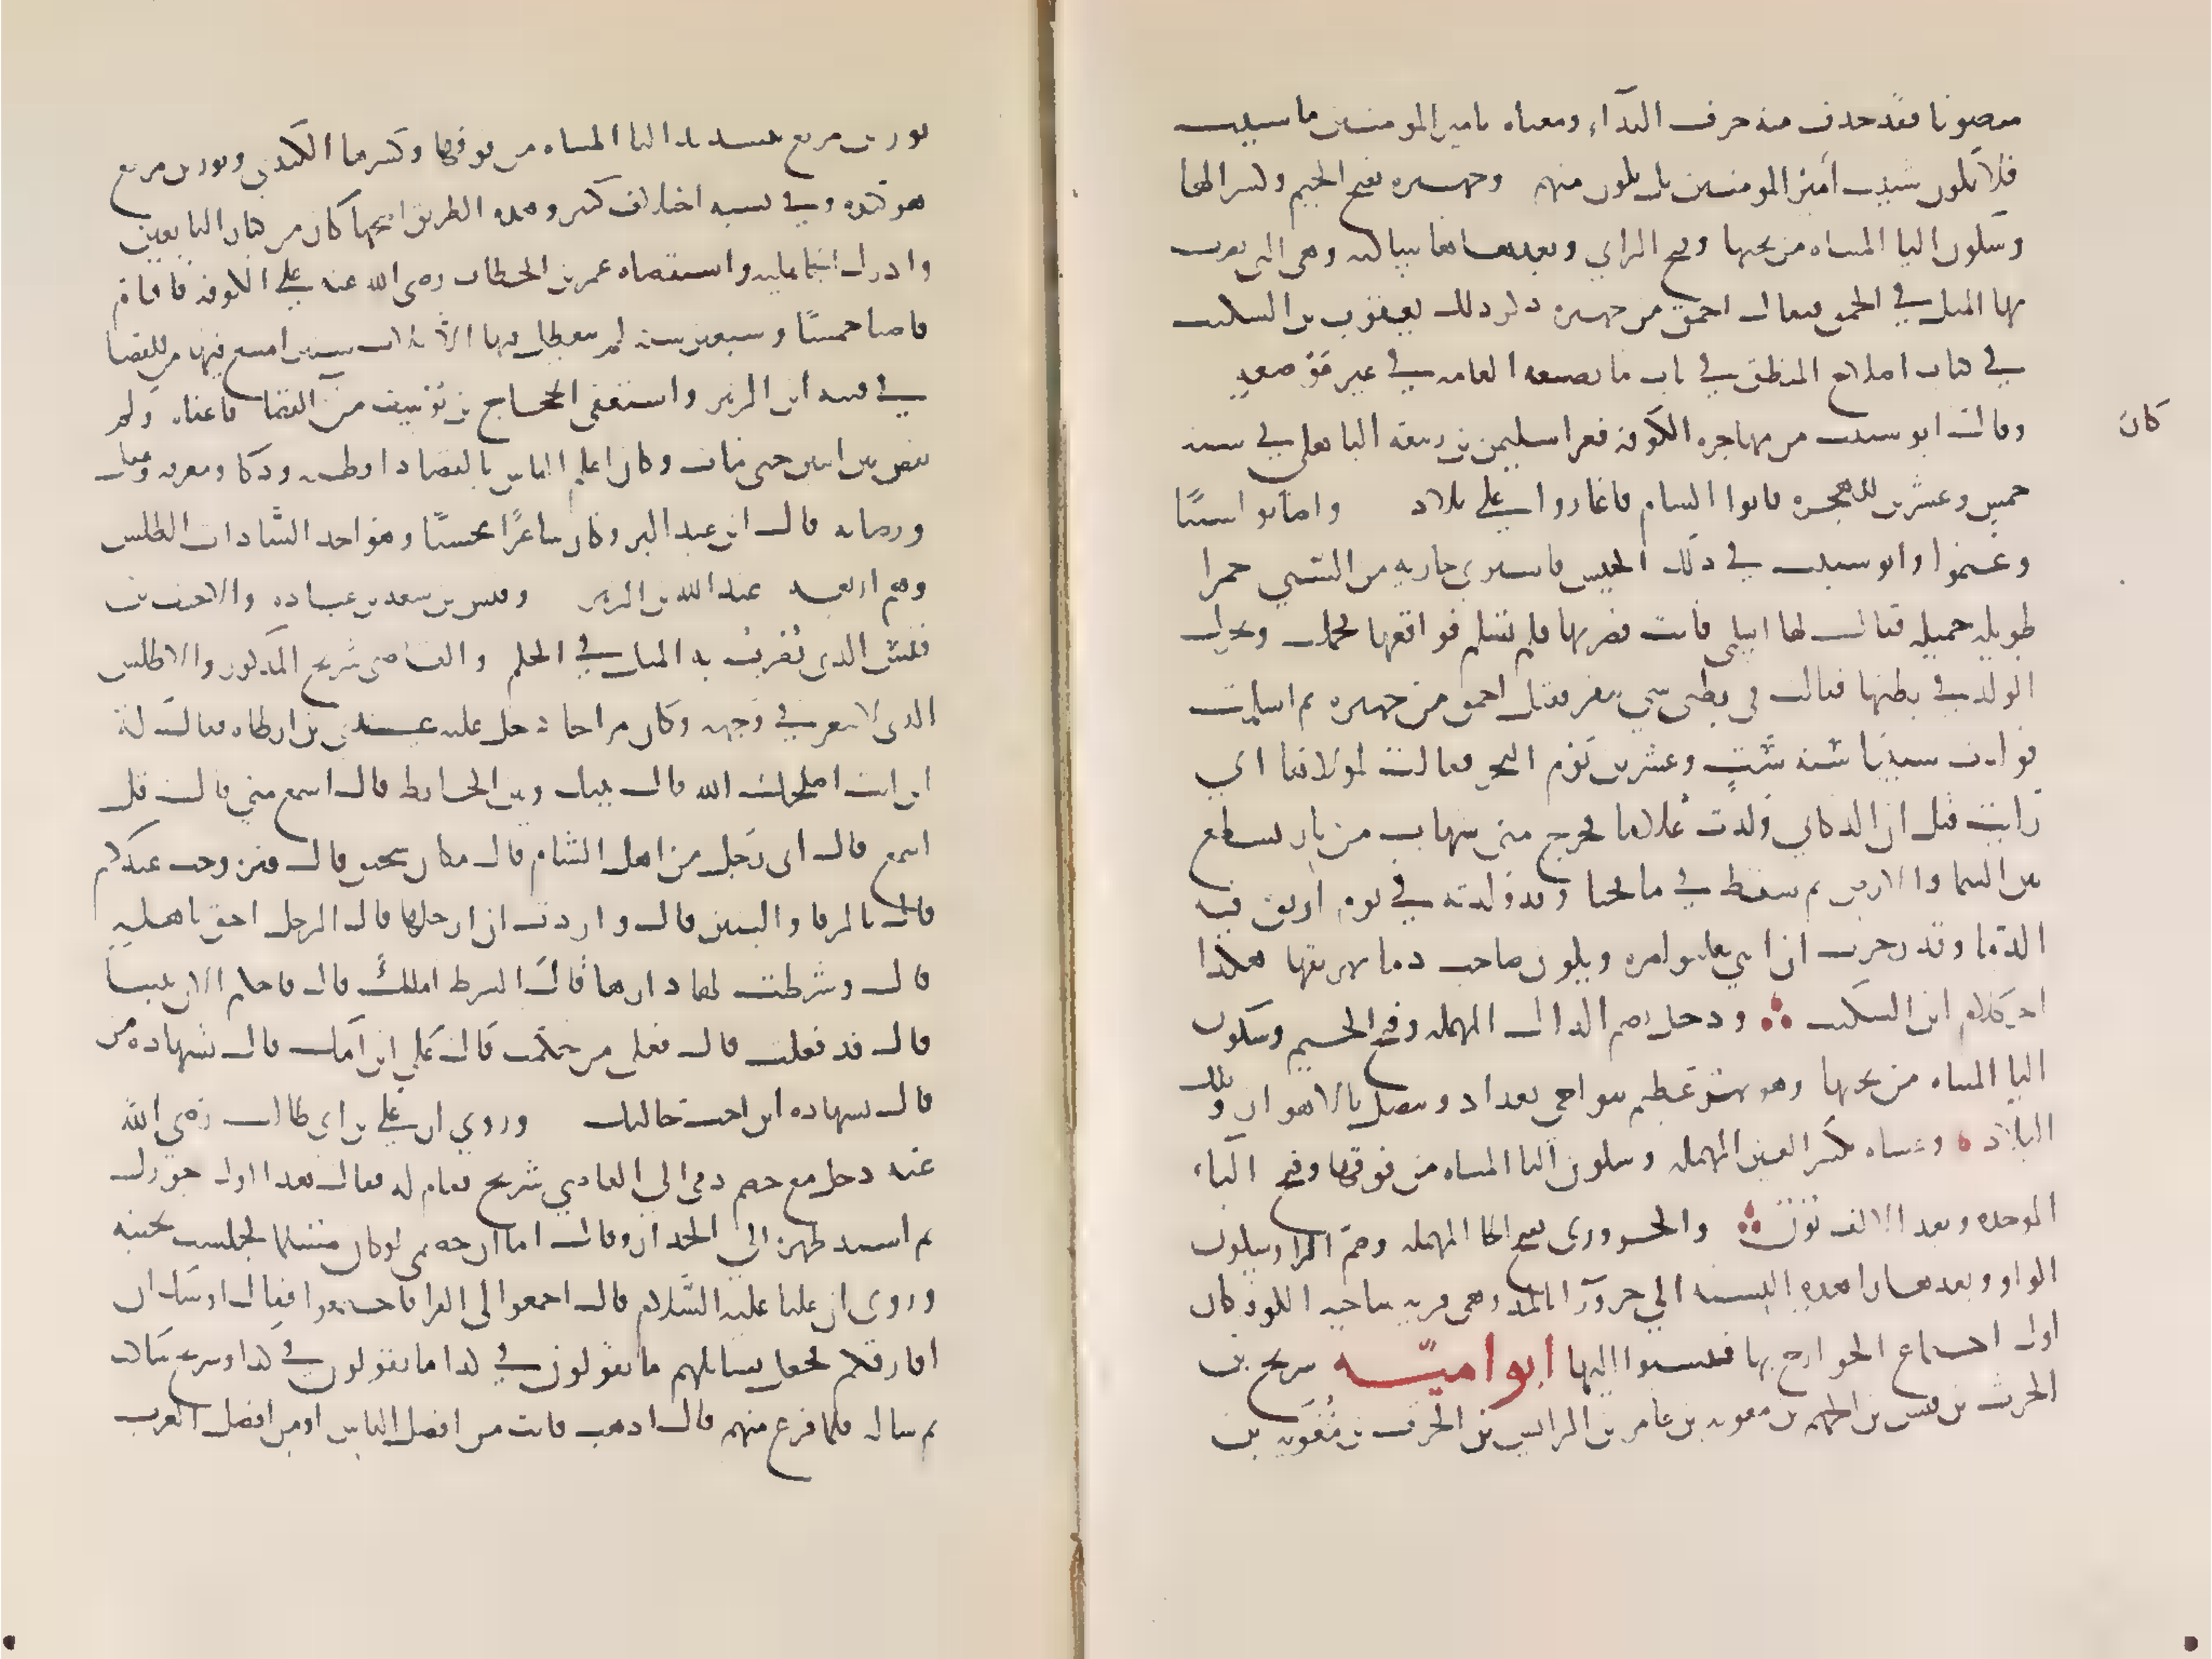 منصوبا فقد حذف منه حرف النداء ومعناه يا امير المومنين منا شبيب
فلا يكون شبيب أميرَ المومنين بل يكون منهم وجهيزه بفتح الجيم وكسر الها
وسكون اليا المثناه من تحتها وفتح الزاي وبعدها ها ساكنه وهي التي يضرب
بها المثل في الحمق فيقال احمق من جهيزه ذكر ذلك يعقوب بن السكيت
في كتاب اصلاح المنطق في باب ما تضعه العامه في غير موضعه
كان
وقال ابو شبيب من مهاجره الكوفه فغزا سليمن بن ربيعه الباهلي في سنه
خمس وعشرين للهجره فاتوا الشام فاغاروا على بلاد واصابوا سبيًا
وغنموا وابو شبيب في ذلك الجيش فاشتري جاريه من السبي حمرا
طويله جميله فقال لها اسلمي فابت فضربها فلم تسلم فواقعها فحملت وتحرك
الولد في بطنها فقالت في بطني شي ينقز فقيل احمق من جهيزه ثم اسلمت
فولدت شبيبًا سنه ستٍ وعشرين يوم النحر فقالت لمولاها اني
رايت قبل ان الد كاني ولدت غلاما فخرج مني شهاب من نار فسطع
بين السما والارض ثم سقط في ما فخبا وقد ولدته في يوم اريق فيه
الدما وقد زجرت ان ابني يعلوا امره ويكون صاحب دما يهريقها هكذا
اخر كلام ابن السكيت ؞ ودجيل بضم الدال المهمله وفتح الجيم وسكون
اليا المثناه من تحتها وهو نهر عظيم بنواحي بغداد ومتصل بالاهواز وتلك
البلاد ه وعتبان بكسر العين المهمله وسكون التا المثناه من فوقها وفتح الباء
الموحده وبعد الالف نون ؞ والحروري بفتح الحا المهمله وضم الرا وسكون
الواو وبعدها را هذه النسبه الي حرورآ بالمد وهي قريه بناحيه الكوفه كان
اول اجتماع الخوارج بها فنسبوا اليها ابو اميّه شريح بن
الحرث بن قيس بن الجهم بن معويه بن عامر بن الرايش بن الحرث بن مُعَويه بن
ثور بن مرتع بتشديد التا المثناه من فوقها وكسرها الكندي وثور بن مرتع
هو كنده وفي نسبه اختلاف كثير وهذه الطريق اصحها كان من كبار التابعين
وادرك الجاهليه واستقضاه عمر بن الخطاب رضي الله عنه على الكوفه فاقام
قاضيا خمسًا وسبعين سنه لم يتعطل فيها الا ثلاث سنين امتنع فيها من القضا
في فتنه ابن الزبير واستعفى الحجاج بن يوسف من القضا فاعفاه ولم
يقض بين اثنين حتى مات وكان اعلم الناس بالقضا ذا فطنه وذكا ومعرفه وعقل
ورصانه قال ابن عبد البر وكان شاعرًا محسنًا وهو احد السّادات الطلس
وهم اربعه عبد الله بن الزبير وقيس بن سعد بن عباده والاحنف بن
قيس الذي يُضربُ به المثل في الحلم والقاضي شريح المذكور والاطلس
الذي لا شعر في وجهه وكان مزاحا دخل عليه عدي بن ارطاه فقال له
اين انت اصلحك الله قال بينك وبين الحايط قال اسمع مني قال قل
اسمع قال اني رَجل من اهل الشام قال مكان سحيق قال وتزوجت عندكم
قال بالرفا والبنين قال واردت ان ارحلها قال الرجل احق باهله
قال وشرطت لها دارها قال الشرط املك قال فاحكم الان بيننا
قال قد فعلت قال فعلى من حكمت قال على ابن امك قال بشهاده من
قال بشهاده ابن اخت خالتك وروي ان علي بن ابي طالب رضي الله
عنه دخل مع خصم ذمي الي القاضي شريح فقام له فقال هذا اول جورك
ثم اسند ظهره الي الجدار وقال اما ان خصمي لو كان مسلما لجلست بجنبه
وروى ان عليا عليه السَّلام قال اجمعوا لي القرا فاجتمعوا فقال اوشك ان
افارقكم فجعل يسايلهم ما تقولون في كذا ما تقولون في كذا وشريح ساكت
ثم ساله فلما فرغ منهم قال اذهب فانت من افضل الناس او من افضل العرب